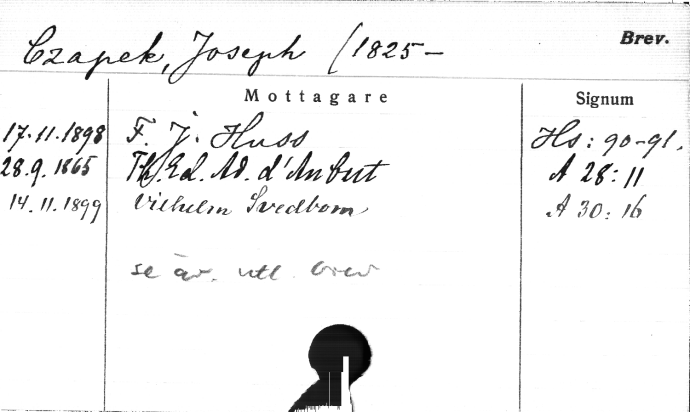 Czapek, Joseph (1825- Brev.
Mottagare Signum
17.11.1898 F. J. Huss Hs: 90-91.
28.9.1865 Th. Ed. Ad. d'Aubert A 28:11
14.11.1899 Vilhelm Svedbom A 30:16
se äv. utl. brev